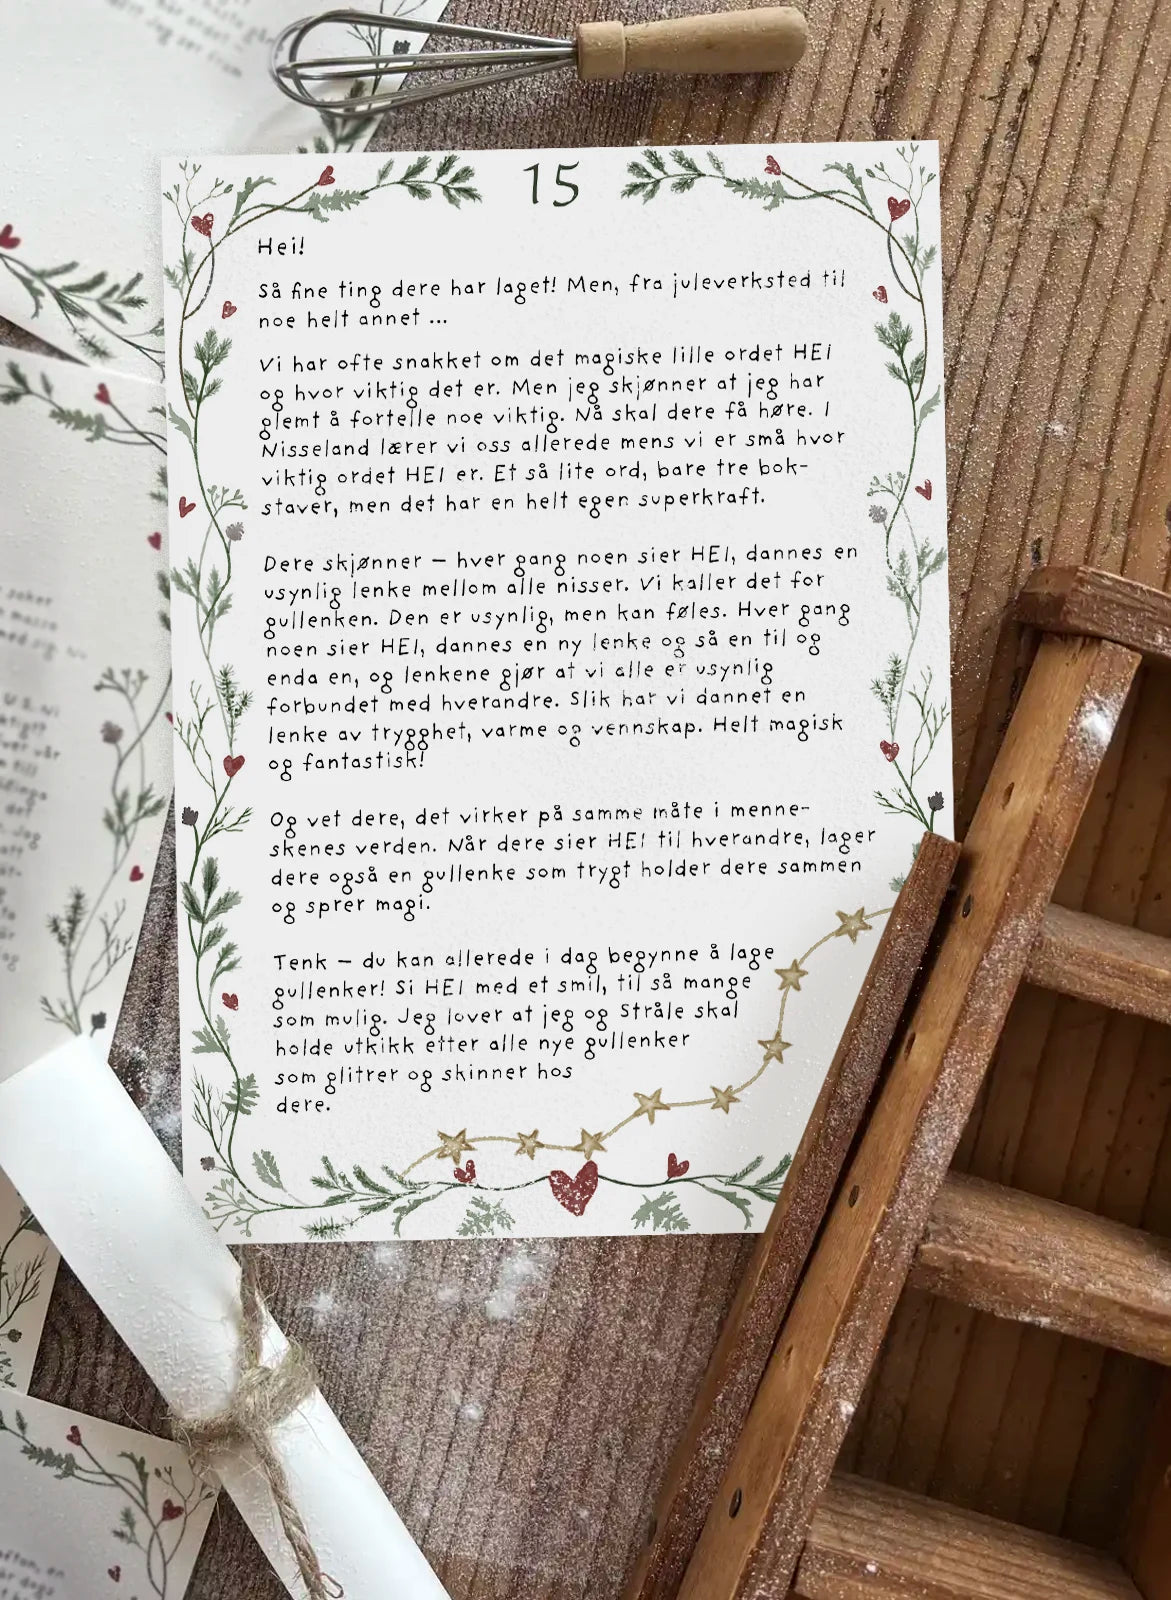 15
Hei!
Så fine ting dere har laget! Men, fra juleverksted til
noe helt annet ...
Vi har ofte snakket om det magiske lille ordet HEI
og hvor viktig det er. Men jeg skjønner at jeg har
glemt å fortelle noe viktig. Nå skal dere få høre. I
Nisseland lærer vi oss allerede mens vi er små hvor
viktig ordet HEI er. Et så lite ord, bare tre bok-
staver, men det har en helt egen superkraft.
Dere skjønner – hver gang noen sier HEI, dannes en
usynlig lenke mellom alle nisser. Vi kaller det for
gullenken. Den er usynlig, men kan føles. Hver gang
noen sier HEI, dannes en ny lenke og så en til og
enda en, og lenkene gjør at vi alle er usynlig
forbundet med hverandre. Slik har vi dannet en
lenke av trygghet, varme og vennskap. Helt magisk
og fantastisk!
Og vet dere, det virker på samme måte i menne-
skenes verden. Når dere sier HEI til hverandre, lager
dere også en gullenke som trygt holder dere sammen
og sprer magi.
Tenk – du kan allerede i dag begynne å lage
gullenker! Si HEI med et smil, til så mange
som mulig. Jeg lover at jeg og Stråle skal
holde utkikk etter alle nye gullenker
som glitrer og skinner hos
dere.